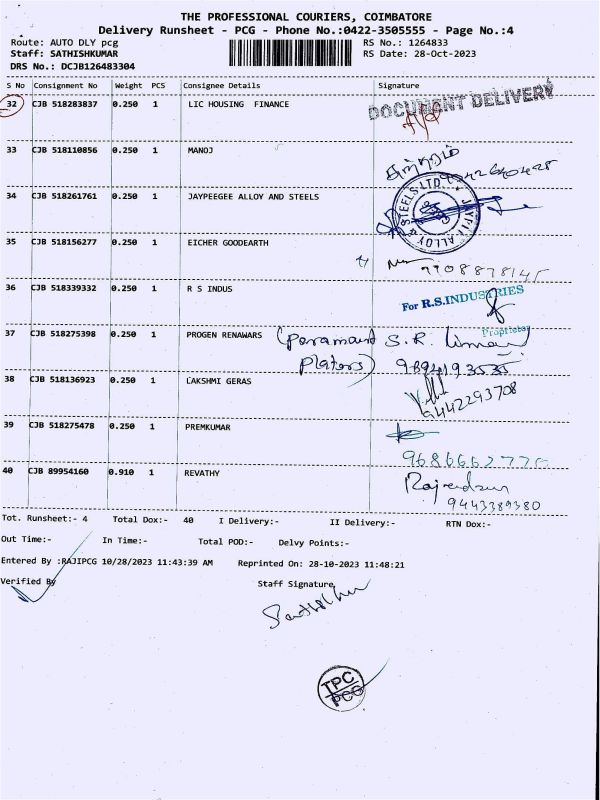 THE PROFESSIONAL COURIERS, COIMBATORE
Delivery Runsheet - PCG - Phone No.:0422-3505555 - Page No.:4
Route: AUTO DLY pcg RS No.: 1264833
Staff: SATHISHKUMAR RS Date: 28-Oct-2023
DRS No.: DCJB126483304
S No Consignment No Weight PCS Consignee Details Signature
32 CJB 518283837 0.250 1 LIC HOUSING FINANCE DOCUMENT DELIVERY
33 CJB 518110856 0.250 1 MANOJ
34 CJB 518261761 0.250 1 JAYPEEGEE ALLOY AND STEELS
35 CJB 518156277 0.250 1 EICHER GOODEARTH
7708878145
36 CJB 518339332 0.250 1 R S INDUS
For R.S.INDUSTRIES
Proprietor
37 CJB 518275398 0.250 1 PROGEN RENAWARS (Paramount S.R.
Platers)
38 CJB 518136923 0.250 1 LAKSHMI GERAS
9442293708
39 CJB 518275478 0.250 1 PREMKUMAR
40 CJB 89954160 0.910 1 REVATHY
Rajendran
9443389380
Tot. Runsheet:- 4 Total Dox:- 40 I Delivery:- II Delivery:- RTN Dox:-
Out Time:- In Time:- Total POD:- Delvy Points:-
Entered By :RAJIPCG 10/28/2023 11:43:39 AM Reprinted On: 28-10-2023 11:48:21
Verified By Staff Signature
TPC
PCG